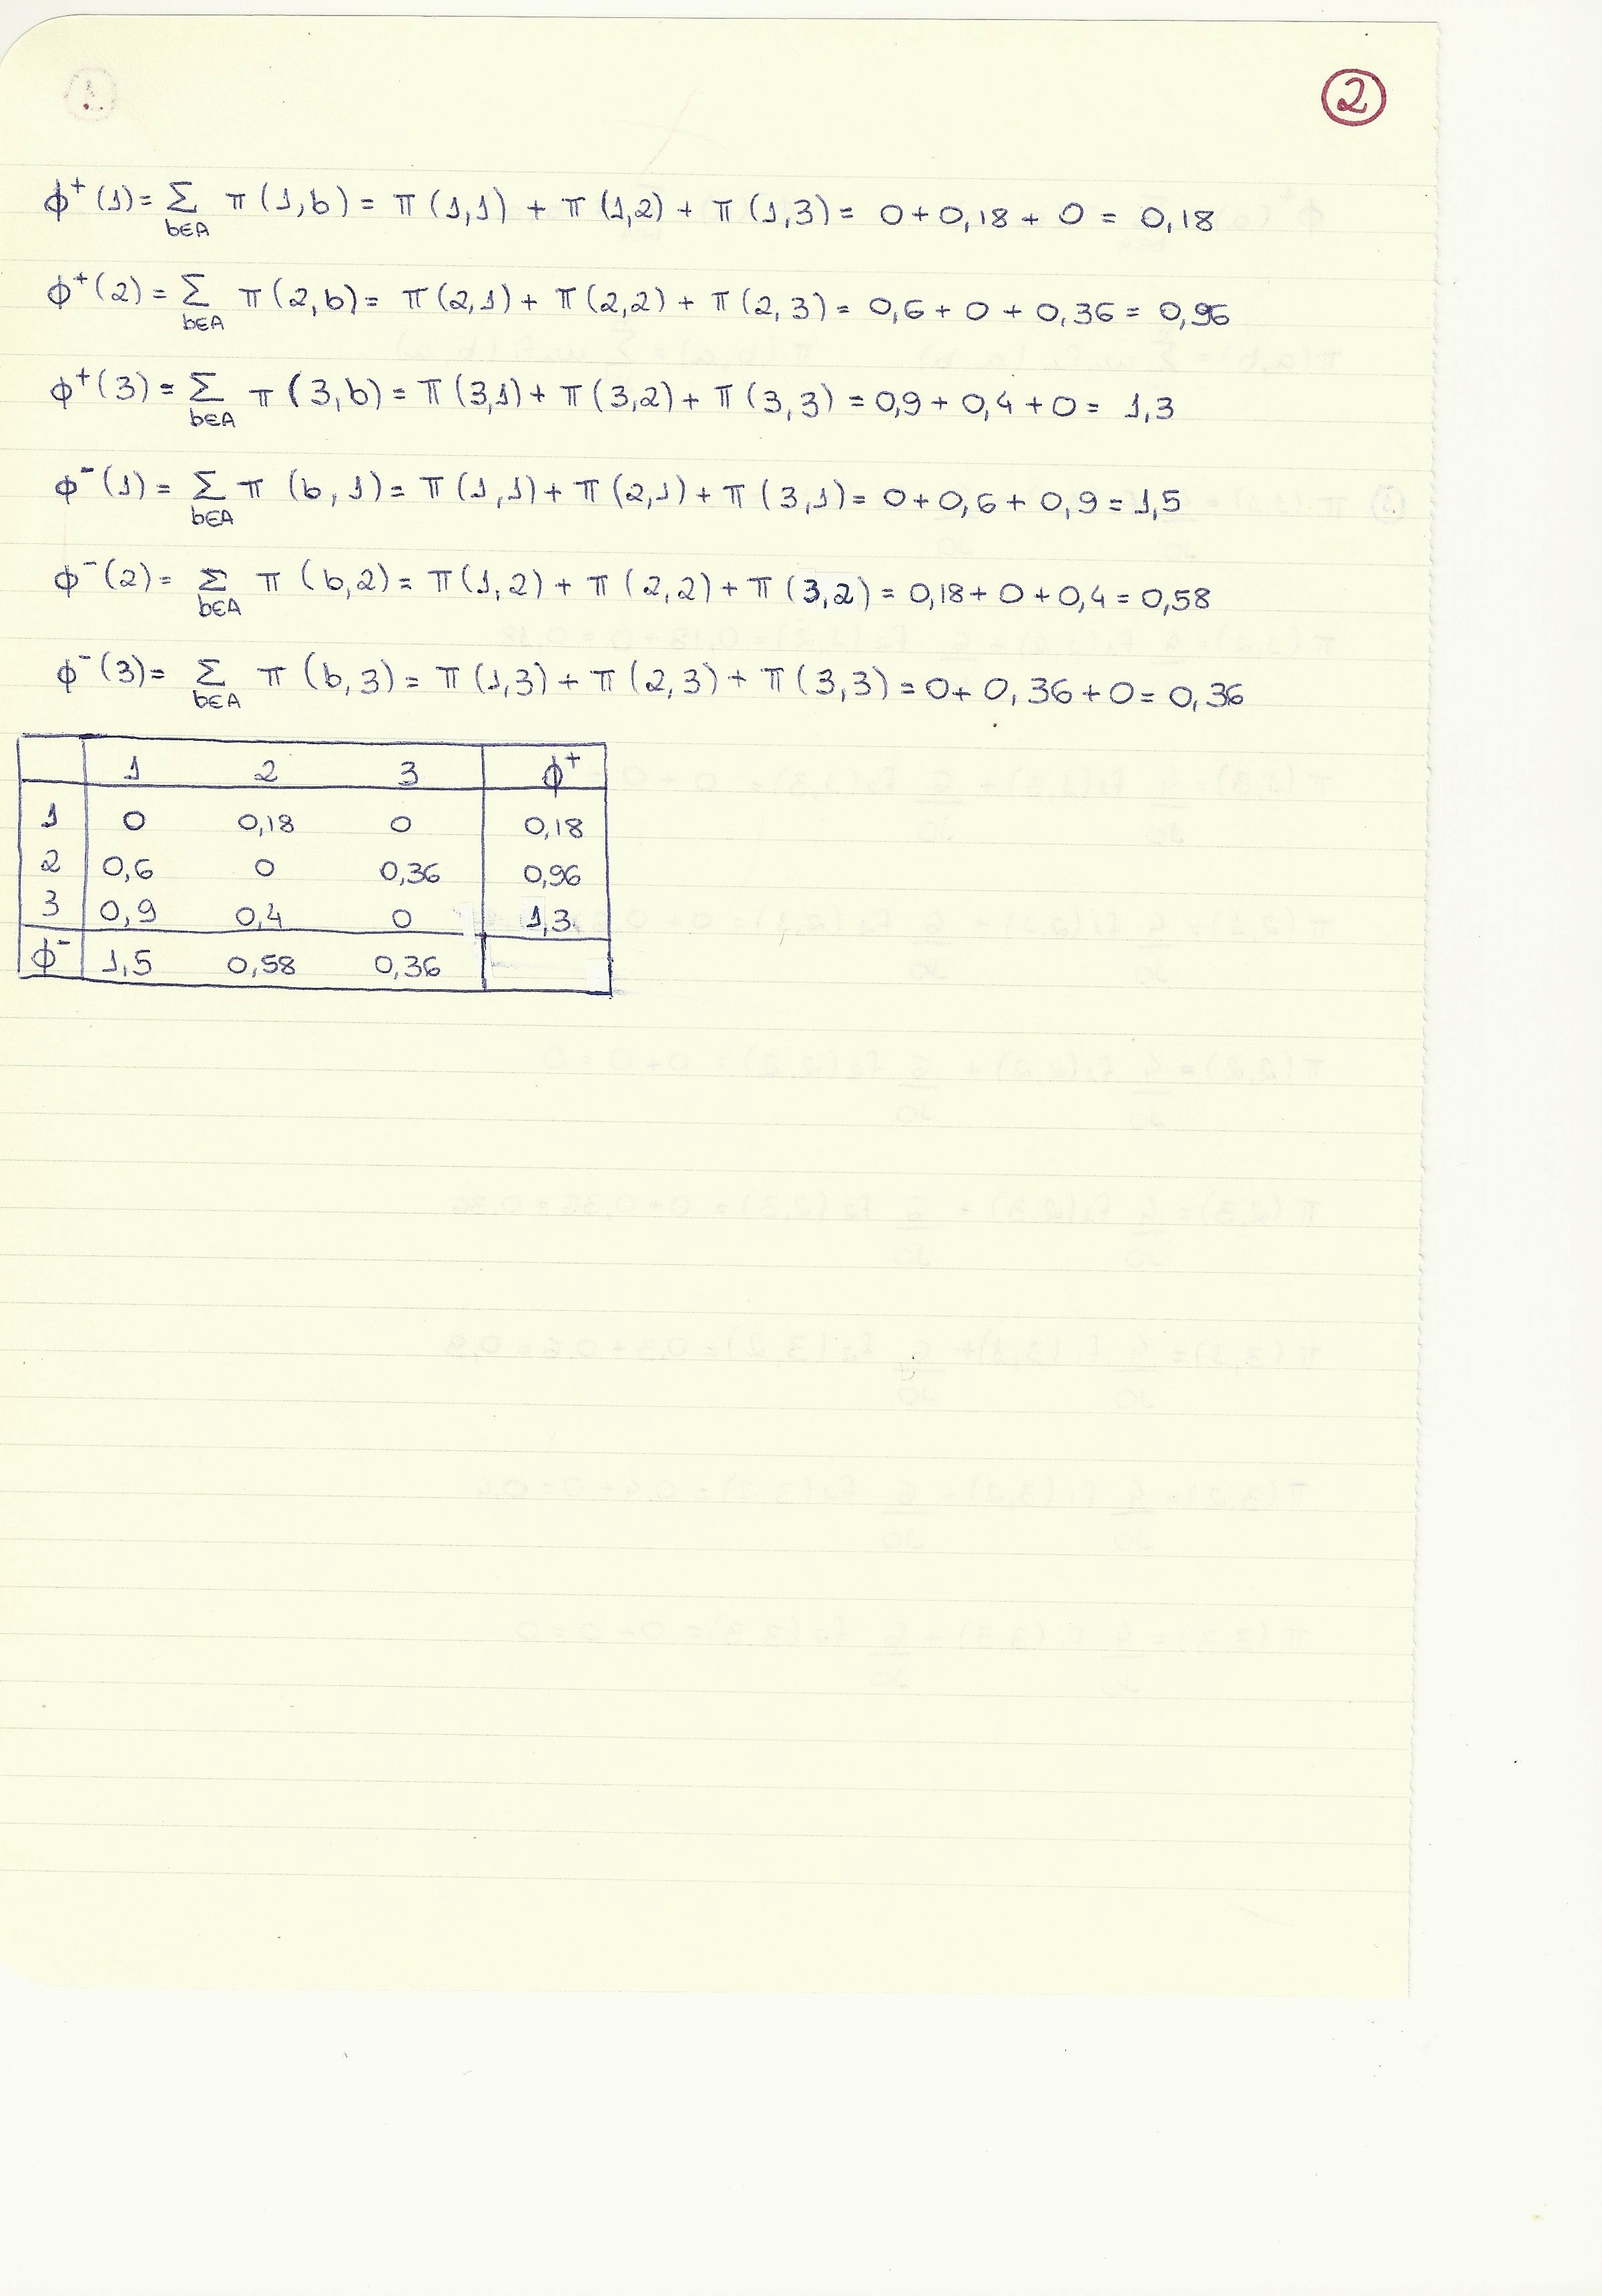 2
ϕ⁺(1)= Σ π(1,b)= π(1,1) + π(1,2) + π(1,3)= 0+0,18+ 0 = 0,18
b∈A
ϕ⁺(2)= Σ π(2,b)= π(2,1)+ π(2,2)+ π(2,3)= 0,6+0+0,36= 0,96
b∈A
ϕ⁺(3)= Σ π(3,b)= π(3,1)+ π(3,2)+ π(3,3)=0,9+0,4+0= 1,3
b∈A
ϕ⁻(1)= Σ π(b,1)= π(1,1)+ π(2,1)+ π(3,1)= 0+0,6+0,9=1,5
b∈A
ϕ⁻(2)= Σ π(b,2)= π(1,2)+ π(2,2)+π(3,2)= 0,18+0+0,4=0,58
b∈A
ϕ⁻(3)= Σ π(b,3)= π(1,3)+ π(2,3)+ π(3,3)=0+0,36+0=0,36
b∈A
1 2 3 ϕ⁺
1 0 0,18 0 0,18
2 0,6 0 0,36 0,96
3 0,9 0,4 0 1,3
ϕ⁻ 1,5 0,58 0,36